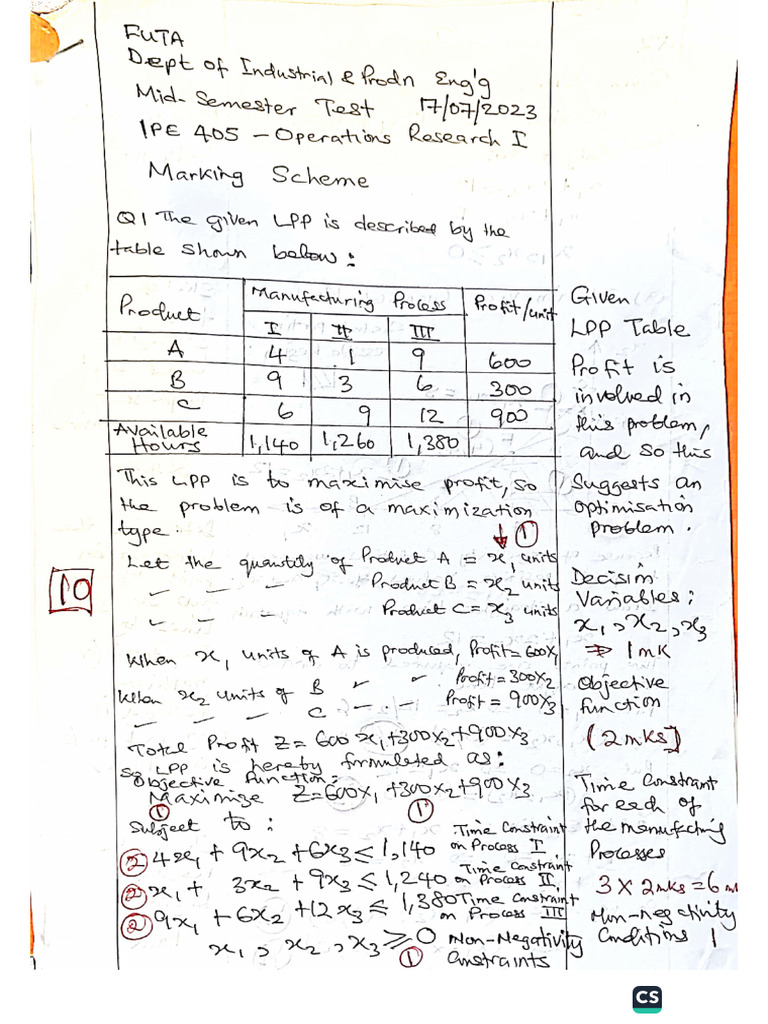 FUTA
Dept of Industrial & Prodn Eng'g
Mid-Semester Test 17/07/2023
IPE 405 - Operations Research I
Marking Scheme
Q1 The given LPP is described by the
table shown below:
Product Manufacturing Process Profit/unit
I II III
A 4 1 9 600
B 9 3 6 300
C 6 9 12 900
Available Hours 1,140 1,260 1,380
Given
LPP Table
Profit is
involved in
this problem,
and so this
Suggests an
optimisation
problem.
This LPP is to maximise profit, so
the problem is of a maximization
type.
1
Let the quantity of Product A = x₁ units
✓ ✓ ✓ Product B = x₂ units
✓ ✓ ✓ Product C = x₃ units
10
Decision
Variables:
x₁, x₂, x₃
⇒ 1mk
When x₁ units of A is produced, Profit = 600x₁
When x₂ units of B ✓ ✓ Profit = 300x₂
✓ ✓ ✓ C ✓ ✓ Profit = 900x₃
Objective
function
(2mks)
Total Profit Z = 600x₁+300x₂+900x₃
So LPP is hereby formulated as:
Objective Function:
Maximize Z = 600x₁+300x₂+900x₃
1 1
Subject to:
2 4x₁ + 9x₂ + 6x₃ ≤ 1,140 Time Constraint on Process I
2 x₁ + 3x₂ + 9x₃ ≤ 1,240 Time Constraint on Process II,
2 9x₁ + 6x₂ + 12x₃ ≤ 1,380 Time Constraint on Process III
x₁, x₂, x₃ ≥ 0 Non-Negativity Constraints
1
Time Constraint
for each of
the manufacting
Processes
3 x 2mks = 6m
Non-negativity
Conditions 1
CS